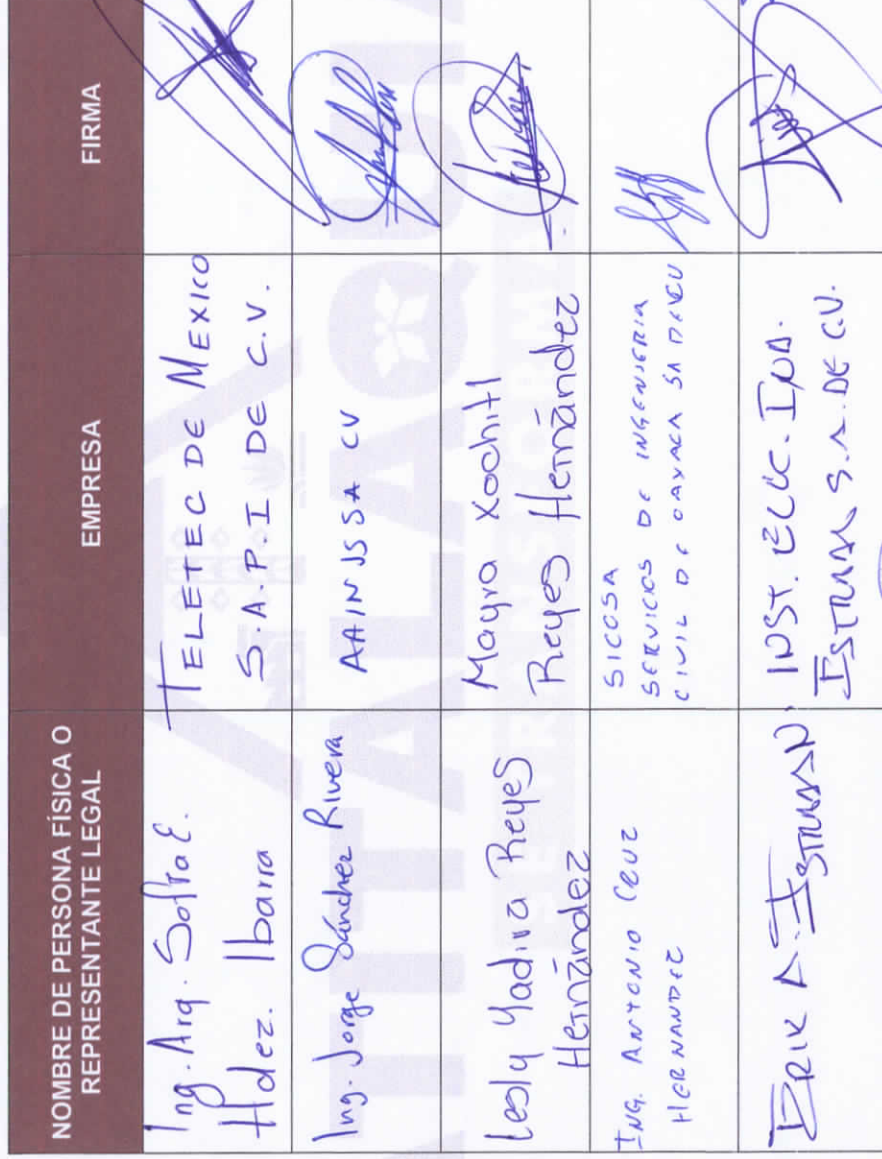 NOMBRE DE PERSONA FÍSICA O
REPRESENTANTE LEGAL
EMPRESA
FIRMA
Ing. Arq. Sofia E.
Hdez. Ibarra
TELETEC DE MEXICO
S.A.P.I DE C.V.
Ing. Jorge Sánchez Rivera
AAINJS SA CV
Lesly Yadira Reyes
Hernández
Mayra Xochitl
Reyes Hernández
ING. ANTONIO CRUZ
HERNANDEZ
SICOSA
SERVICIOS DE INGENIERIA
CIVIL DE OAXACA SA DE CV
ERIK A.
INST. ELEC. IND.
S.A. DE C.V.